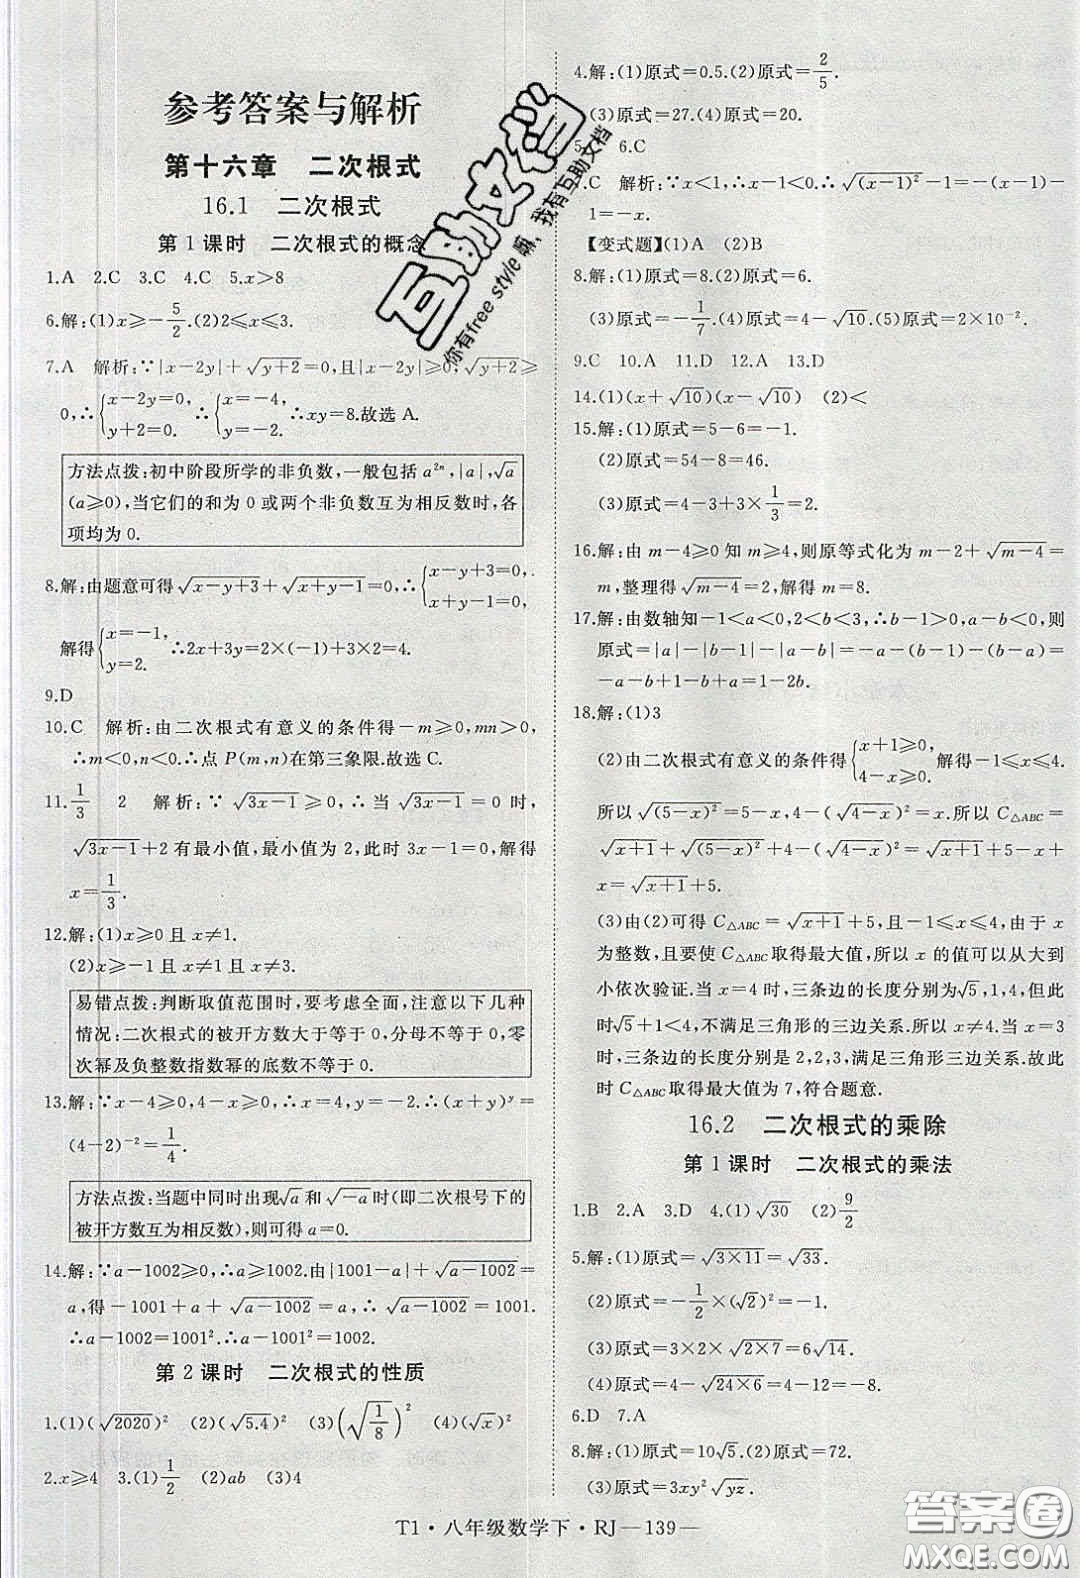 参考答案与解析
第十六章 二次根式
16.1 二次根式
第1课时 二次根式的概念
1.A 2.C 3.C 4.C 5.x>8
6.解:(1)x≥-5/2.(2)2≤x≤3.
7.A 解析:∵|x-2y|+√(y+2)=0,且|x-2y|≥0,√(y+2)≥
0,∴{x-2y=0, y+2=0. ∴{x=-4, y=-2. ∴xy=8.故选A.
方法点拨:初中阶段所学的非负数,一般包括a²ⁿ,|a|,√a
(a≥0),当它们的和为0或两个非负数互为相反数时,各
项均为0.
8.解:由题意可得√(x-y+3)+√(x+y-1)=0.∴{x-y+3=0, x+y-1=0.
解得{x=-1, y=2. ∴2x+3y=2×(-1)+3×2=4.
9.D
10.C 解析:由二次根式有意义的条件得-m≥0,mn>0,
∴m<0,n<0.∴点P(m,n)在第三象限.故选C.
11.1/3 2 解析:∵√(3x-1)≥0,∴当√(3x-1)=0时,
√(3x-1)+2有最小值,最小值为2,此时3x-1=0,解得
x=1/3.
12.解:(1)x≥0且x≠1.
(2)x≥-1且x≠1且x≠3.
易错点拨:判断取值范围时,要考虑全面,注意以下几种
情况:二次根式的被开方数大于等于0,分母不等于0,零
次幂及负整数指数幂的底数不等于0.
13.解:∵x-4≥0,4-x≥0,∴x=4,y=-2.∴(x-y)ʸ=
(4-2)⁻²=1/4.
方法点拨:当题中同时出现√a和√(-a)时(即二次根号下的
被开方数互为相反数),则可得a=0.
14.解:∵a-1002≥0,∴a≥1002.由|1001-a|+√(a-1002)=
a,得-1001+a+√(a-1002)=a,∴√(a-1002)=1001.
∴a-1002=1001².∴a-1001²=1002.
第2课时 二次根式的性质
1.(1)(√2020)² (2)(√5.4)² (3)(√(1/8))² (4)(√x)²
2.x≥4 3.(1)1/2 (2)ab (3)4
4.解:(1)原式=0.5.(2)原式=2/5.
(3)原式=27.(4)原式=20.
6.C
C 解析:∵x<1,∴x-1<0.∴√((x-1)²)-1=-(x-1)-
1=-x.
【变式题】(1)A (2)B
8.解:(1)原式=8.(2)原式=6.
(3)原式=-1/7.(4)原式=4-√10.(5)原式=2×10⁻².
9.C 10.A 11.D 12.A 13.D
14.(1)(x+√10)(x-√10) (2)<
15.解:(1)原式=5-6=-1.
(2)原式=54-8=46.
(3)原式=4-3+3×1/3=2.
16.解:由m-4≥0知m≥4,则原等式化为m-2+√(m-4)=
m,整理得√(m-4)=2,解得m=8.
17.解:由数轴知-1<a<0,2<b<3,∴b-1>0,a-b<0,则
原式=|a|-|b-1|-|a-b|=-a-(b-1)-(b-a)=
-a-b+1-b+a=1-2b.
18.解:(1)3
(2)由二次根式有意义的条件得{x+1≥0, 4-x≥0. 解得-1≤x≤4.
所以√((5-x)²)=5-x,4-(√(4-x))²=x.所以C△ABC=
√(x+1)+√((5-x)²)+4-(√(4-x))²=√(x+1)+5-x+
x=√(x+1)+5.
(3)由(2)可得C△ABC=√(x+1)+5,且-1≤x≤4,由于x
为整数,且要使C△ABC取得最大值,所以x的值可以从大到
小依次验证.当x=4时,三条边的长度分别为√5,1,4,但此
时√5+1<4,不满足三角形的三边关系.所以x≠4.当x=3
时,三条边的长度分别是2,2,3,满足三角形三边关系.故此
时C△ABC取得最大值为7,符合题意.
16.2 二次根式的乘除
第1课时 二次根式的乘法
1.B 2.A 3.D 4.(1)√30 (2)9/2
5.解:(1)原式=√(3×11)=√33.
(2)原式=-1/2×(√2)²=-1.
(3)原式=3×2×√(2×7)=6√14.
(4)原式=√(24×6)=√144=12.
6.D 7.A
8.解:(1)原式=10√5.(2)原式=72.
(3)原式=3xy²√(yz).
T1·八年级数学下·RJ—139—
互助文档
你有free style嘛,我有互助文档
答案圈
MXQE.COM